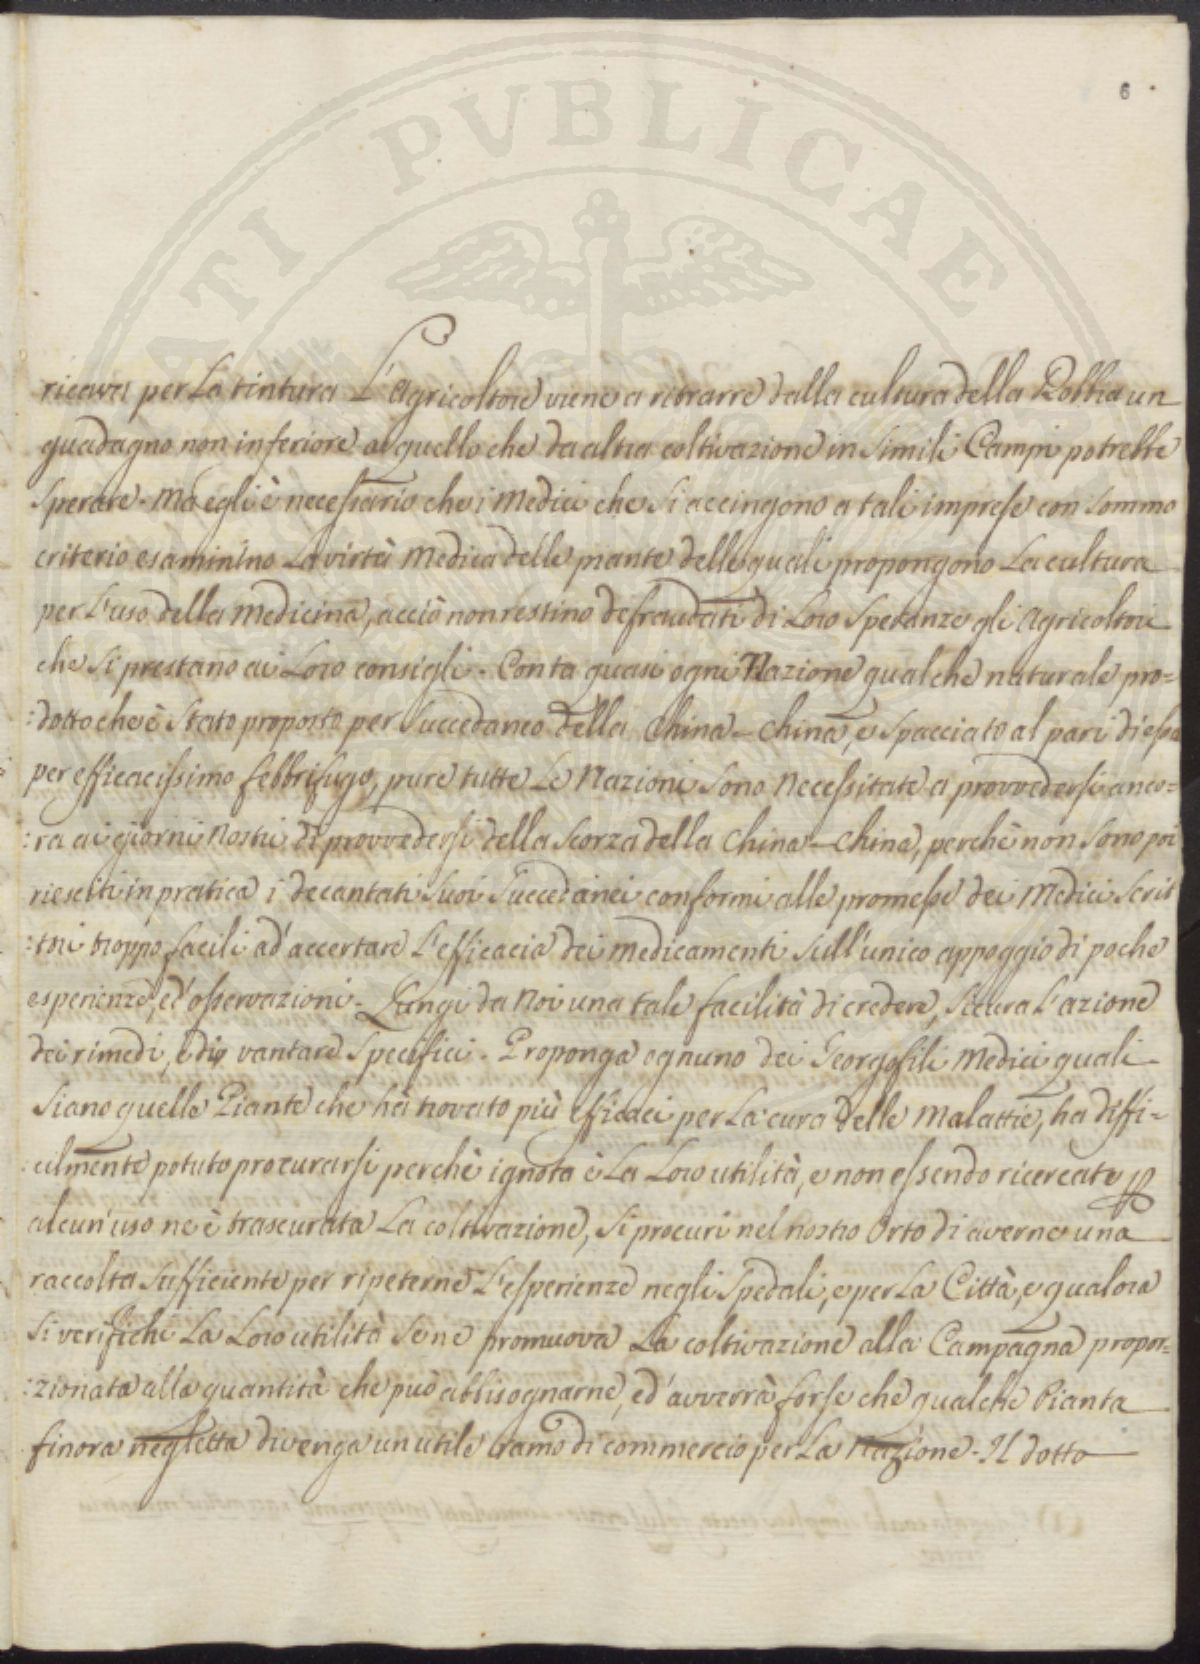 6
ATI PVBLICAE
ricava per La tintura L'Agricoltore viene a ritrarre dalla cultura della Robbia un
guadagno non inferiore a quello che da altra coltivazione in simili Campi potrebbe
sperare. Ma egli è necessario che i Medici che si accingono a tali imprese con sommo
criterio esaminino La virtù Medica delle piante delle quali propongono La cultura
per L'uso della Medicina, acciò non restino defraudati di Loro Speranze gli Agricoltori
che si prestano ai Loro consigli. Conta quasi ogni Nazione qualche naturale pro=
:dotto che è Stato proposto per Succedaneo della China-China, e spacciato al pari di essa
per efficacissimo febbrifugo, pure tutte Le Nazioni Sono Necessitate a provvedersi anco=
:ra ai giorni Nostri di provvedersi della Scorza della China-China, perchè non Sono poi
riesciti in pratica i decantati Suoi Succedanei conformi alle promesse dei Medici Scrit
:tori troppo facili ad'accertare L'efficacia dei Medicamenti Sull'unico appoggio di poche
esperienze, ed'osservazioni. Lungi da Noi una tale facilità di credere, Sicura L'azione
dei rimedi, e di vantare Specifici. Proponga ognuno dei Georgofili Medici quali
Siano quelle Piante che ha trovato più efficaci per La cura delle Malattie, ha diffi=
:cilmente potuto procurarsi perchè ignota è La Loro utilità, e non essendo ricercate p
alcun'uso ne è trascurata La coltivazione, Si procuri nel nostro Orto di averne una
raccolta Sufficiente per ripeterne L'esperienze negli Spedali, e per La Città, e qualora
Si verifichi La Loro utilità Se ne promuova La coltivazione alla Campagna propor=
:zionata alla quantità che può abbisognarne, ed'avverrà forse che qualche Pianta
finora negletta divenga un utile ramo di commercio per La Nazione. Il dotto